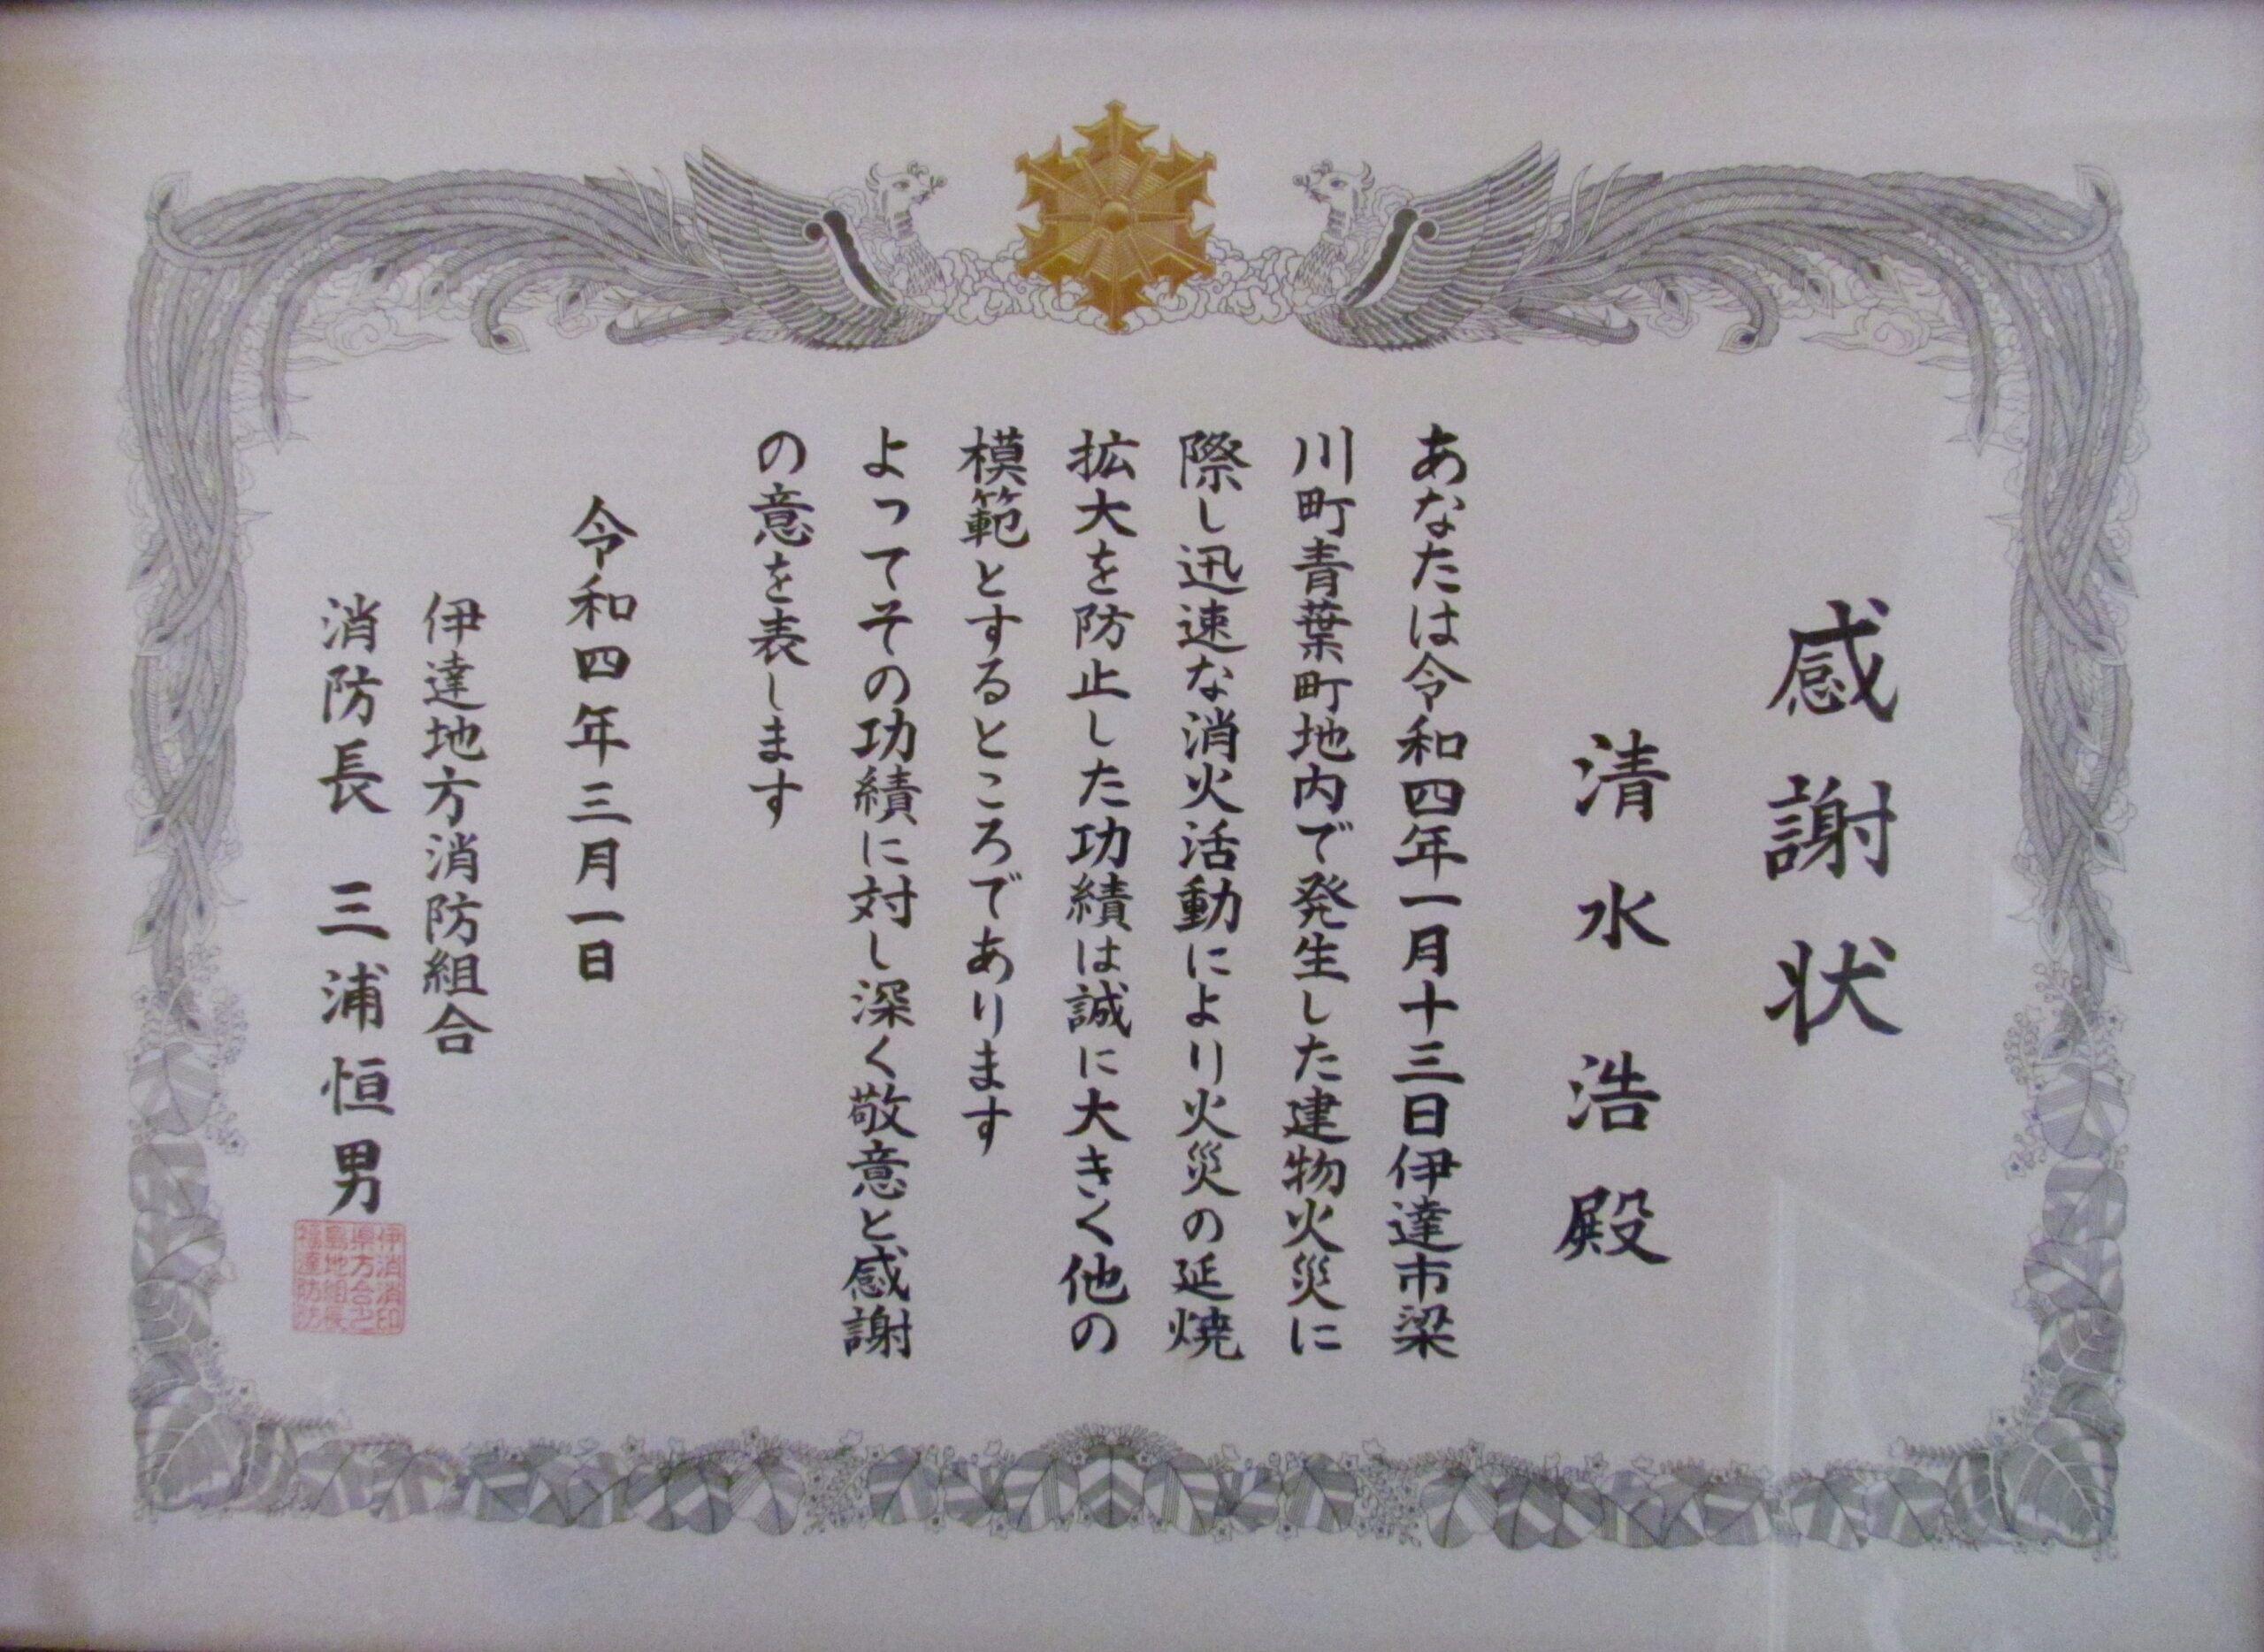 感謝状
清水 浩 殿
あなたは令和四年一月十三日伊達市梁
川町青葉町地内で発生した建物火災に
際し迅速な消火活動により火災の延焼
拡大を防止した功績は誠に大きく他の
模範とするところであります
よってその功績に対し深く敬意と感謝
の意を表します
令和四年三月一日
伊達地方消防組合
消防長 三浦恒男
伊消消印
県方合之
島地組長
福達防防